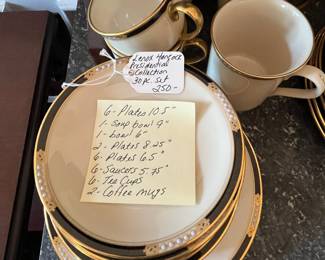 Lenox Hancock
Presidential
Collection
30 pc. set
250-
6- Plates 10.5"
1- Soup bowl 9"
1- bowl 6"
2- Plates 8.25"
6- Plates 6.5"
6- Saucers 5.75"
6- Tea Cups
2- Coffee mugs